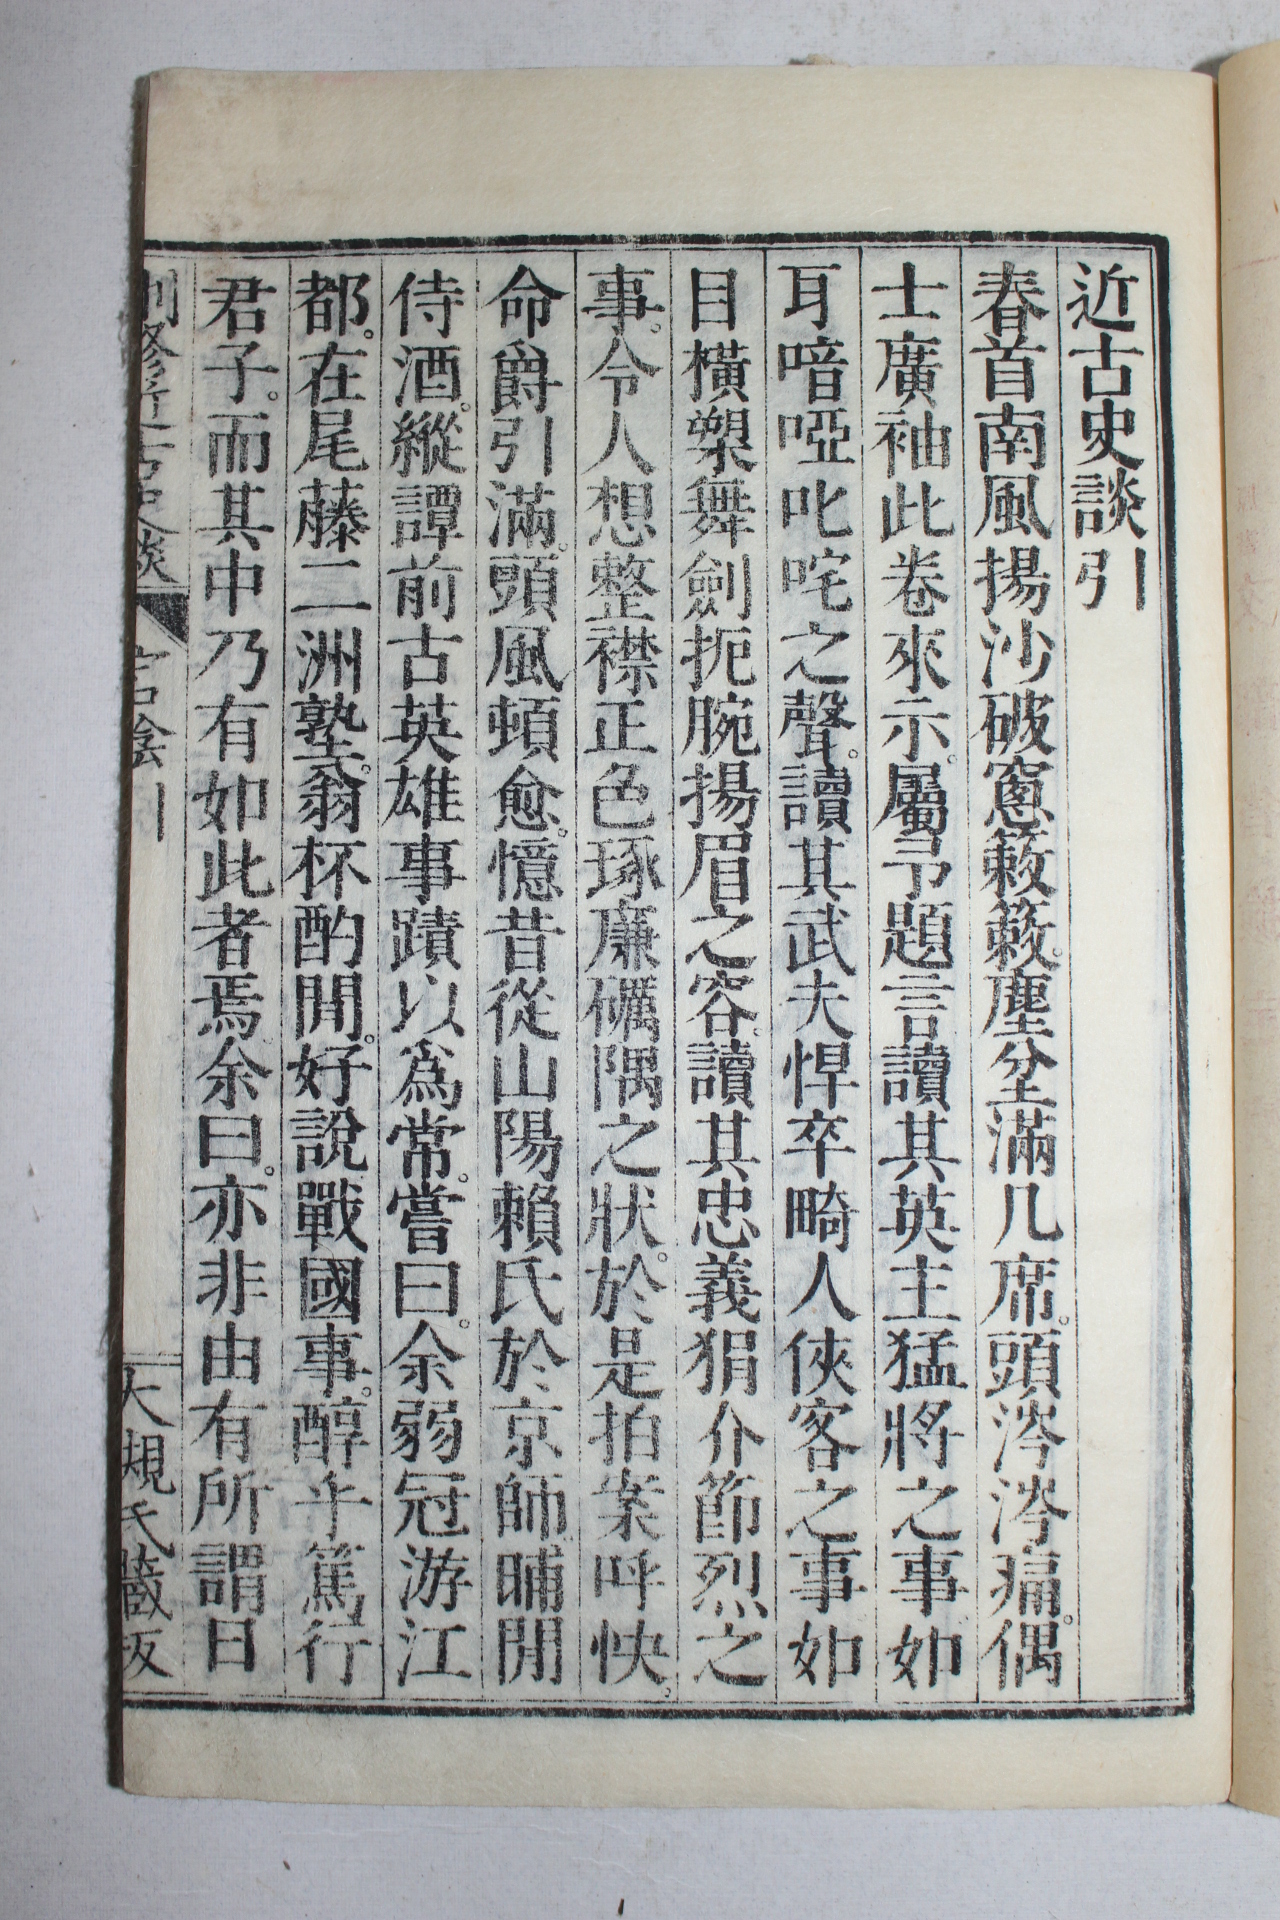 近古史談引
春首南風揚沙破窻簌簌。塵坌滿几席。頭涔涔痛。偶
士廣袖此卷來示。屬予題言讀其英主猛將之事。如
耳喑啞叱咤之聲。讀其武夫悍卒畸人俠客之事。如
目橫槊舞劍扼腕揚眉之容。讀其忠義狷介節烈之
事。令人想整襟正色琢廉礪隅之狀。於是拍案呼快。
命爵引滿。頭風頓愈。憶昔從山陽賴氏於京師。晡閒
侍酒。縱譚前古英雄事蹟以爲常。嘗曰。余弱冠游江
都。在尾藤二洲塾。翁杯酌閒。好說戰國事。醇乎篤行
君子。而其中乃有如此者焉。余曰。亦非由有所謂日
刪修近古史談
宕陰引
大槻氏藏版